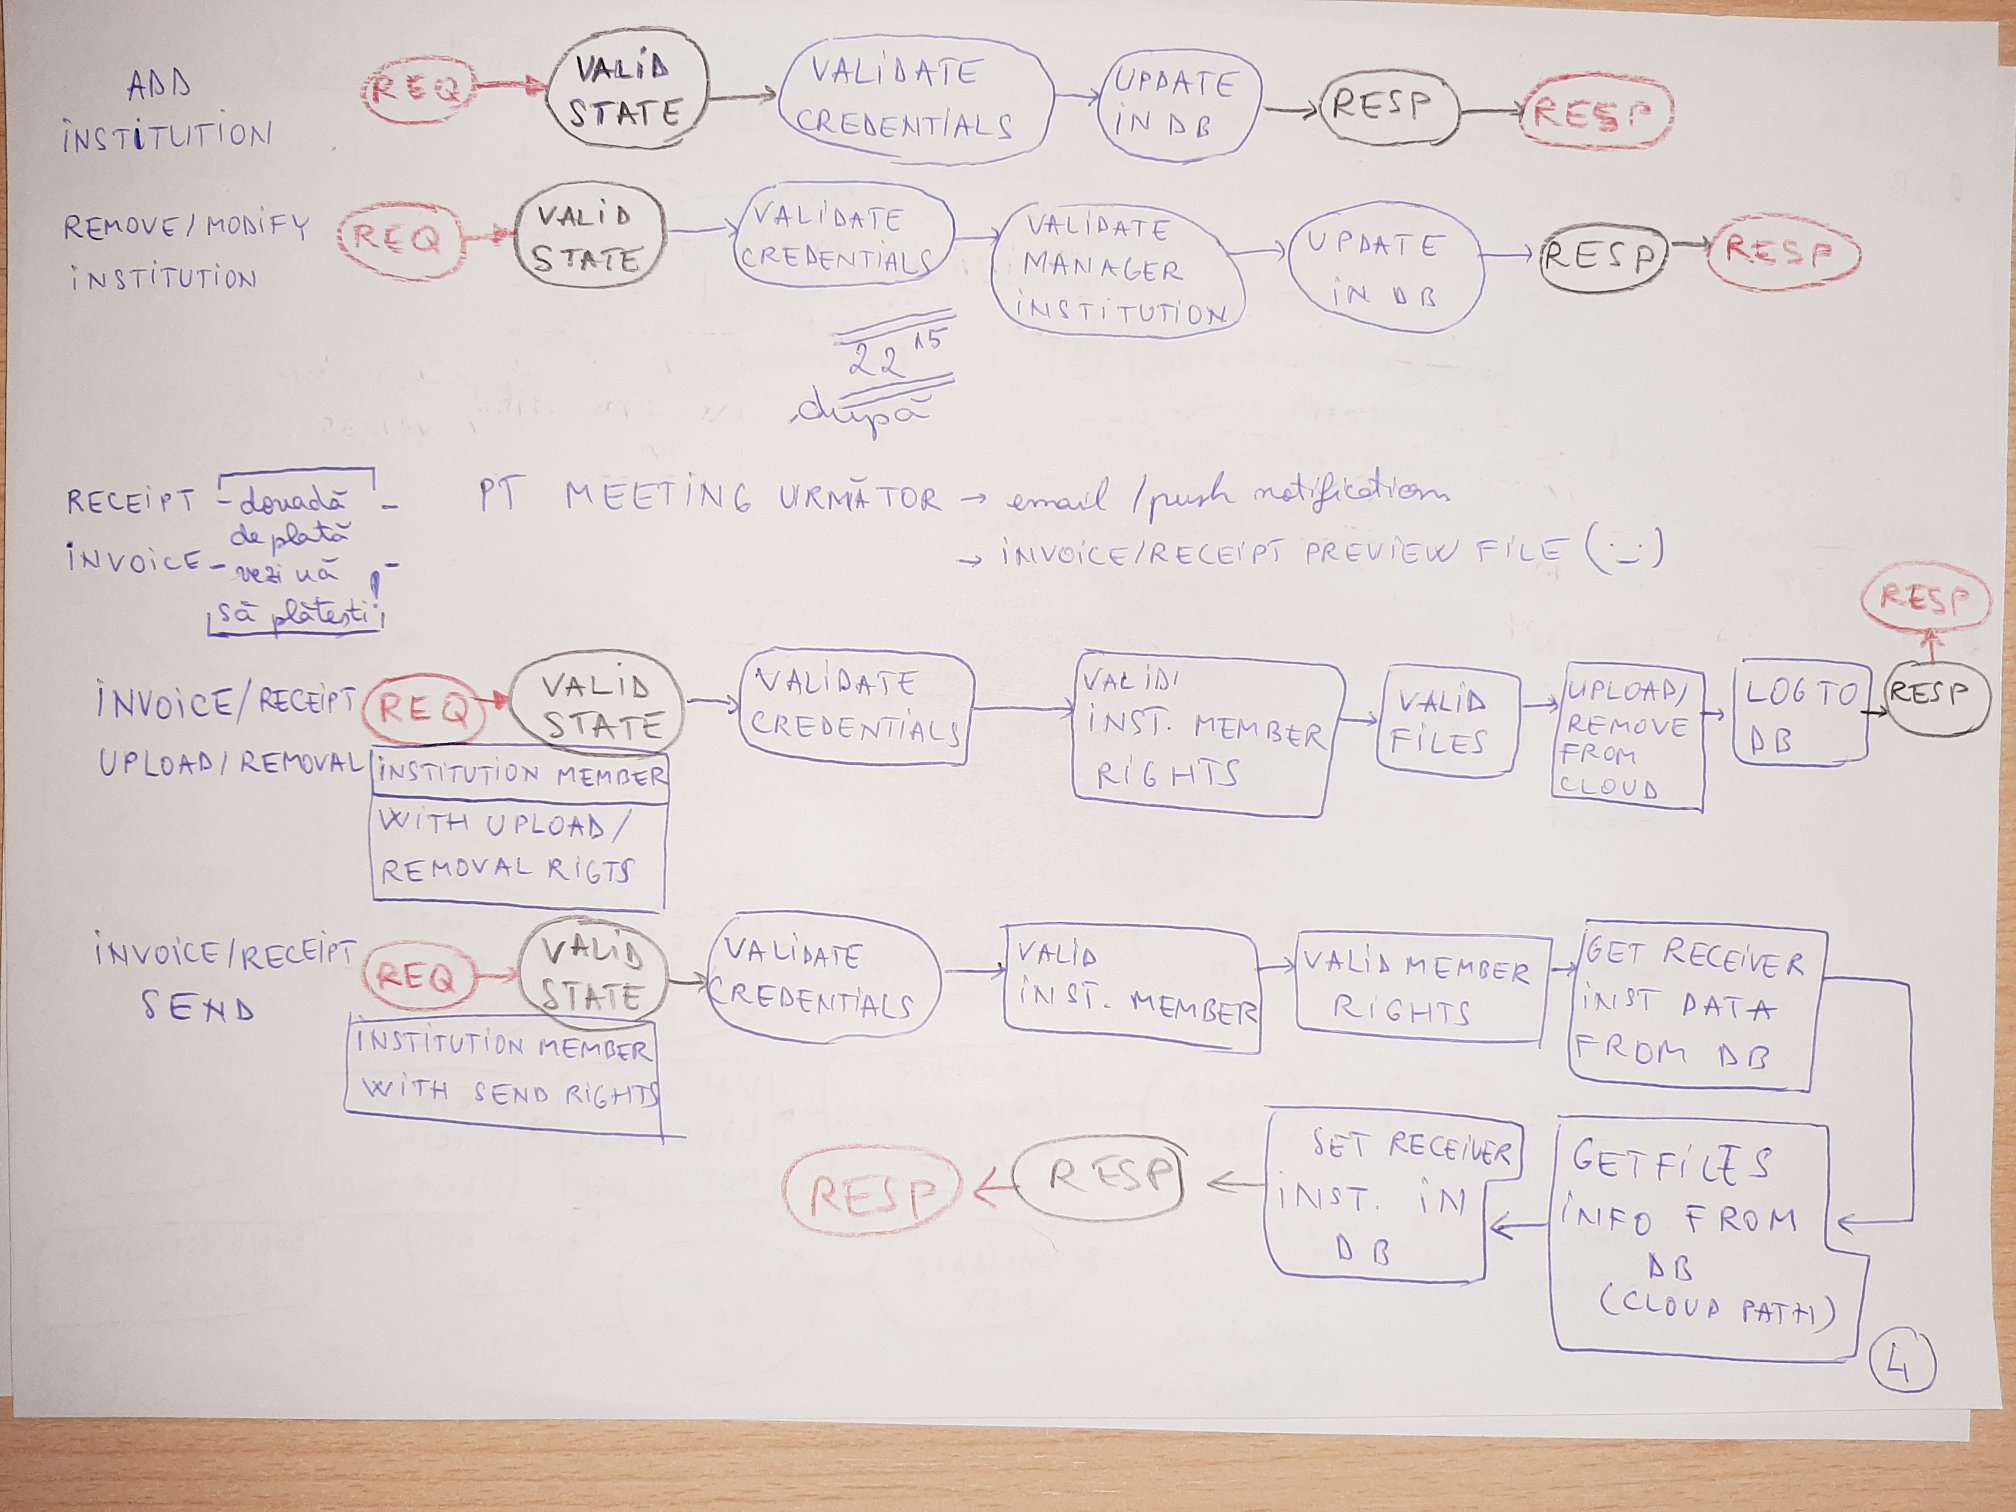 ADD
INSTITUTION
REQ
VALID
STATE
VALIDATE
CREDENTIALS
UPDATE
IN DB
RESP
RESP
REMOVE/MODIFY
INSTITUTION
REQ
VALID
STATE
VALIDATE
CREDENTIALS
VALIDATE
MANAGER
INSTITUTION
UPDATE
IN DB
RESP
RESP
22 15
după
RECEIPT - dovadă -
de plată
INVOICE - vezi că -
să plătești!
PT MEETING URMĂTOR → email / push notification
→ INVOICE/RECEIPT PREVIEW FILE
INVOICE/RECEIPT
UPLOAD/REMOVAL
REQ
INSTITUTION MEMBER
WITH UPLOAD/
REMOVAL RIGTS
VALID
STATE
VALIDATE
CREDENTIALS
VALID
INST. MEMBER
RIGHTS
VALID
FILES
UPLOAD/
REMOVE
FROM
CLOUD
LOG TO
DB
RESP
RESP
INVOICE/RECEIPT
SEND
REQ
INSTITUTION MEMBER
WITH SEND RIGHTS
VALID
STATE
VALIDATE
CREDENTIALS
VALID
INST. MEMBER
VALID MEMBER
RIGHTS
GET RECEIVER
INST DATA
FROM DB
GET FILES
INFO FROM
DB
(CLOUD PATH)
SET RECEIVER
INST. IN
DB
RESP
RESP
4